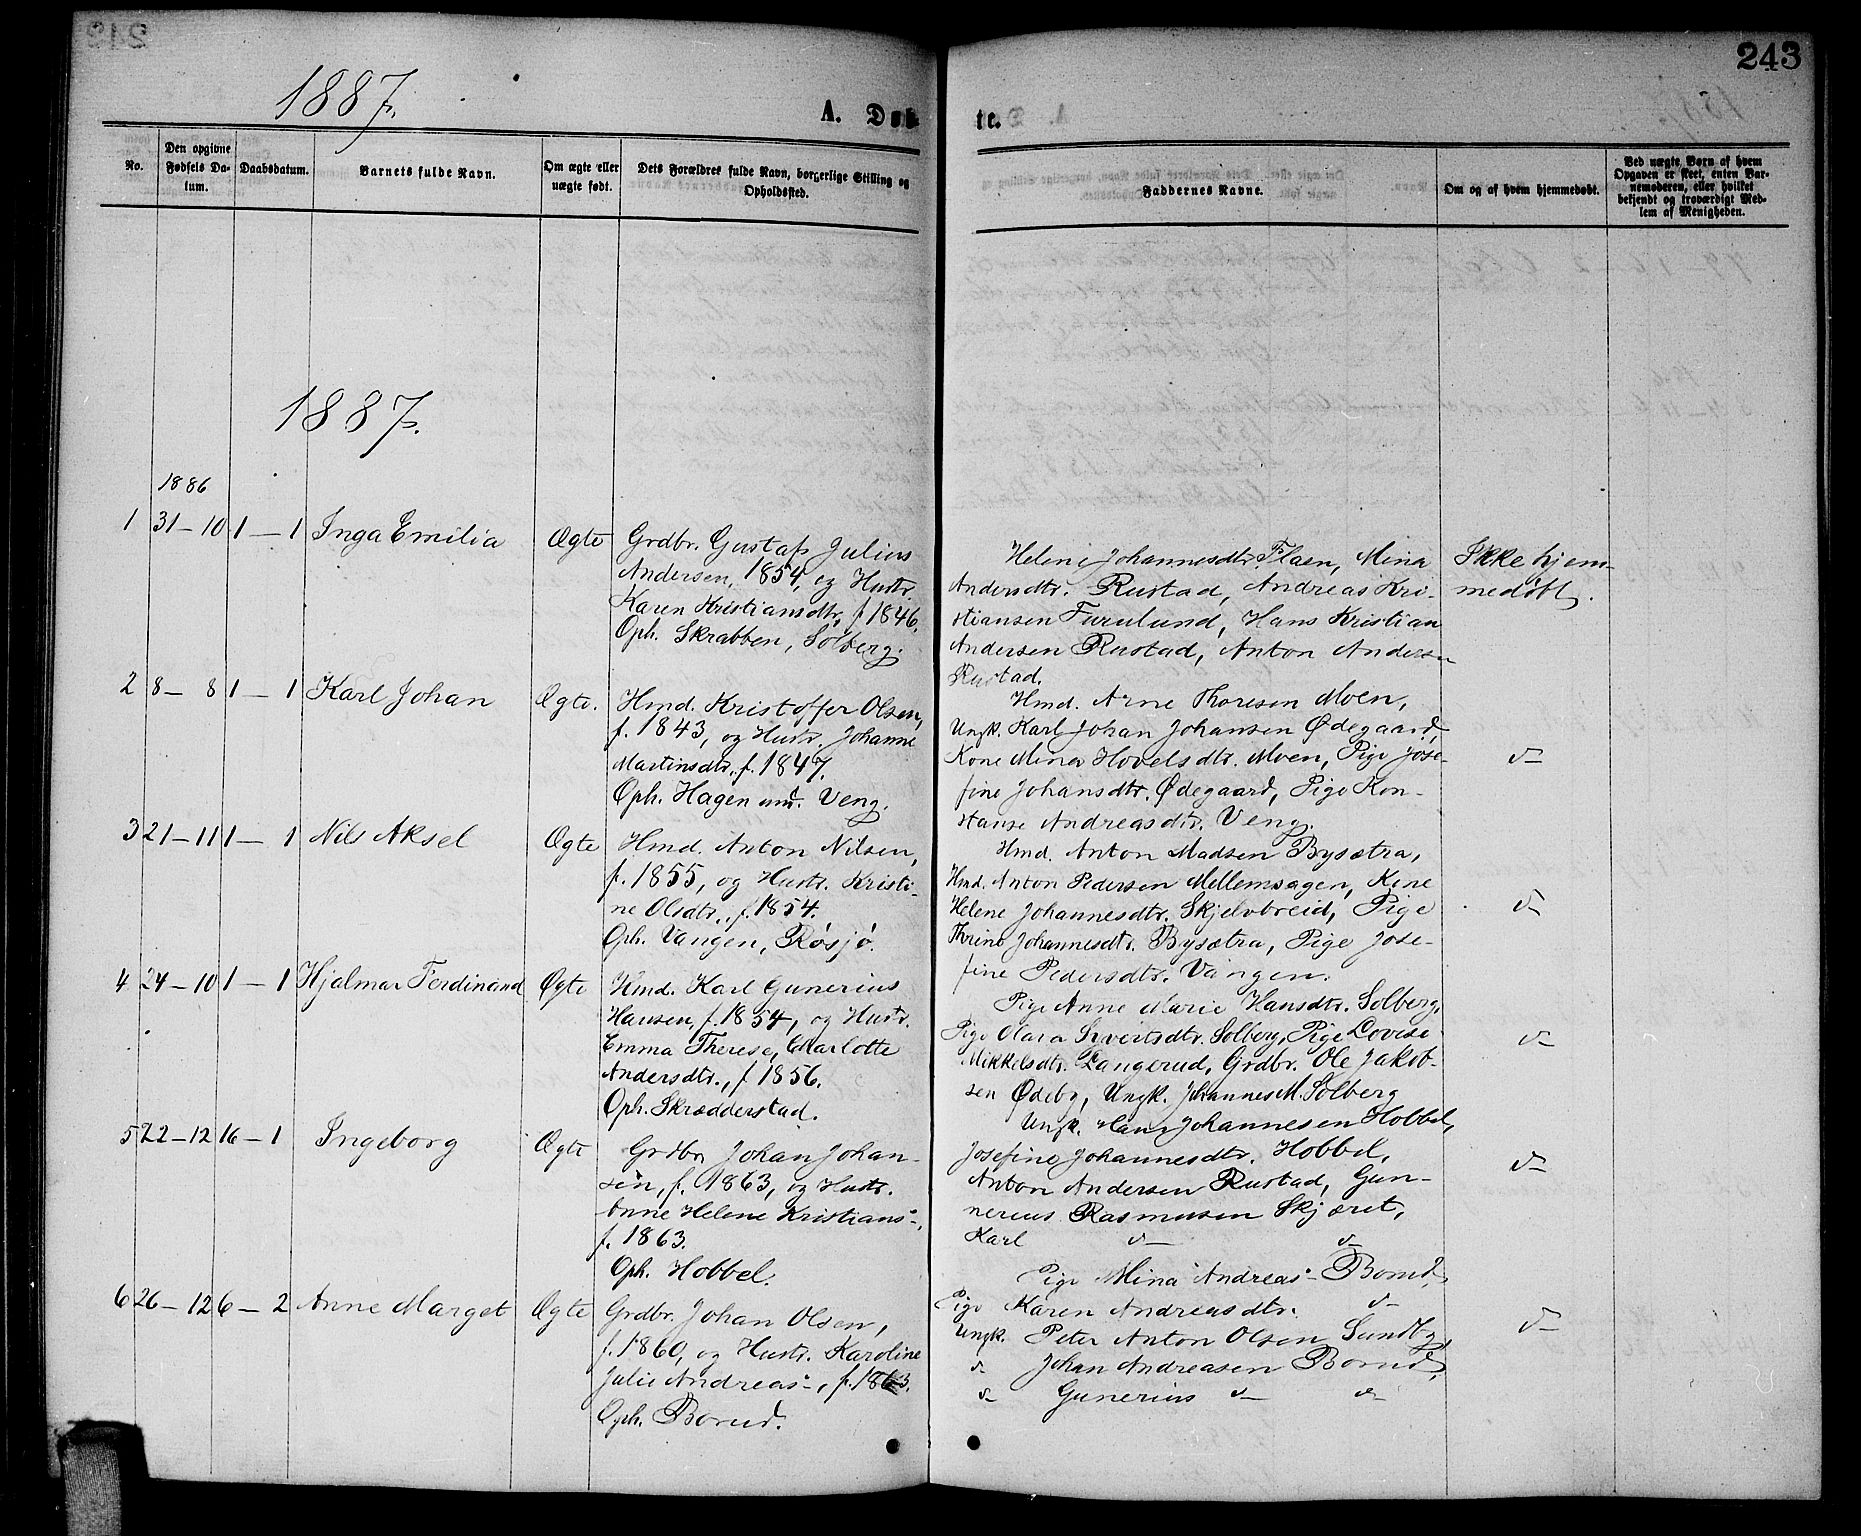 243
1887.
A. Døb
te.
No.
Den opgivne Fødsels Datum.
Daabsdatum.
Barnets fulde Navn.
Om ægte eller uægte født.
Dets Forældres fulde Navn, borgerlige Stilling og Opholdssted.
Faddernes Navne.
Om og af hvem hjemmedøbt.
Ved uægte Børn af hvem Opgaven er skeet, enten Barnemoderen, eller hvilket bekjendt og troværdigt Medlem af Menigheden.
1887.
1886
1 31-10 1-1 Inga Emilia Ægte
Grdbr. Gustaf Julius
Andersen, 1854, og Hustr.
Karen Kristiansdtr, f. 1846.
Oph. Skrabben, Solberg.
Helene Johannesdtr. Flaen, Mina
Andersdtr. Rustad, Andreas Kri-
stiansen Furulund, Hans Kristian
Andersen Rustad, Anton Andersen
Rustad.
Ikke hjem-
medøbt.
2 8-8 1-1 Karl Johan Ægte.
Hmd. Kristoffer Olsen,
f. 1843, og Hustr. Johanne
Martinsdtr. f. 1847.
Oph. Hagen und. Veng.
Hmd. Arne Thoresen Moen,
Ungk. Karl Johan Johansen Ødegaard,
Kone Mina Hovelsdtr. Moen, Pige Jose-
fine Johansdtr. Ødegaard, Pige Kon-
stanse Andreasdtr. Veng.
d-
3 21-11 1-1 Nils Aksel Ægte
Hmd. Anton Nilsen,
f. 1855, og Hustr. Kristi-
ne Olsdtr., f. 1854.
Oph. Vangen, Røsjø.
Hmd. Anton Madsen Bysætra,
Hmd. Anton Pedersen Mellemsagen, Kone
Helene Johannesdtr. Skjelvbreid, Pige
Thrine Johannesdtr. Bysætra, Pige Jose-
fine Pedersdtr. Vangen.
d-
4 24-10 1-1 Hjalmar Ferdinand Ægte
Hmd. Karl Gunerius
Hansen, f. 1854, og Hustr.
Emma Therese, Charlotte
Andersdtr., f. 1856.
Oph. Skrædderstad.
Pige Anne Marie Hansdtr. Solberg,
Pige Olava Sivertsdtr. Solberg, Pige Lovise
Mikkelsdtr. Langerud, Grdbr. Ole Jakob-
sen Ødeby, Ungk. Johannes M. Solberg
d-
5 22-12 16-1 Ingeborg Ægte
Grdbr. Johan Johan-
sen, f. 1863, og Hustr.
Anne Helene Kristians-,
f. 1863.
Oph. Hobbel.
Ungk. Hans Johannesen Hobbel,
Josefine Johannesdtr. Hobbel,
Anton Andersen Rustad, Gun-
nerius Rasmusen Skjæret,
Karl d- d-
d-
6 26-12 6-2 Anne Marget Ægte
Grdbr. Johan Olsen,
f. 1860, og Hustr. Karoline
Julie Andreas-, f. 1863.
Oph. Borud.
Pige Mina Andreas- Borud,
Pige Karen Andreasdtr. d-
Ungk. Peter Anton Olsen Sundby,
d- Johan Andreasen Borud,
d- Gunerius d- d-
d-